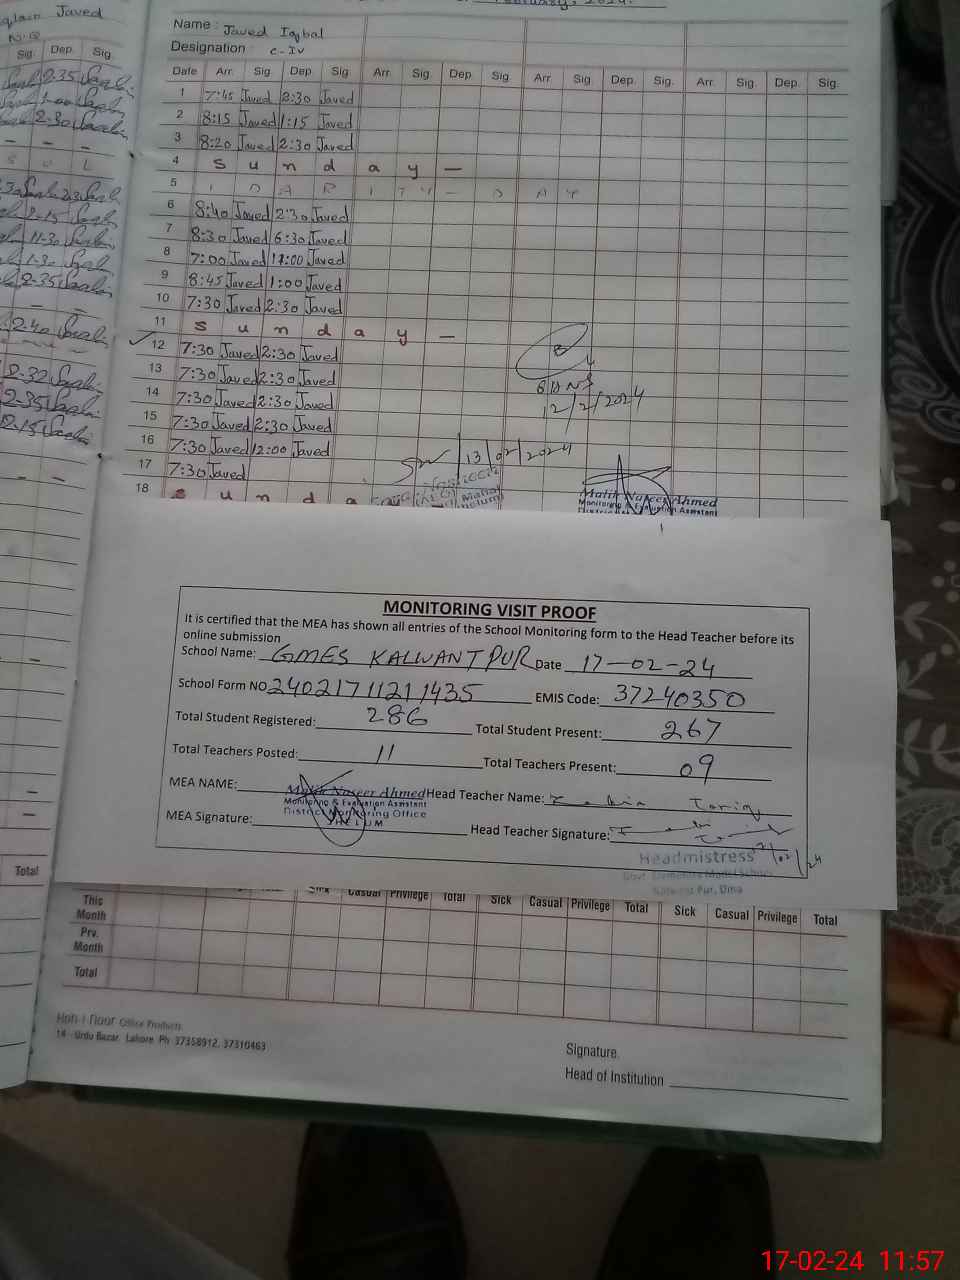 February, 2024.
Javed
Sig. Dep. Sig.
2:35
1:00
2:30
S U L
2-15
11-30
1-30
2-35
2-40
2-30
2-35
2-15
Total
Name : Javed Iqbal
Designation : C-IV
Date Arr. Sig. Dep. Sig. Arr. Sig. Dep. Sig. Arr. Sig. Dep. Sig. Arr. Sig. Dep. Sig.
1 7:45 Javed 2:30 Javed
2 8:15 Javed 1:15 Javed
3 8:20 Javed 2:30 Javed
4 S u n d a y —
5
6 8:40 Javed 2:30 Javed
7 8:30 Javed 6:30 Javed
8 7:00 Javed 11:00 Javed
9 8:45 Javed 1:00 Javed
10 7:30 Javed 2:30 Javed
11 S u n d a y —
12 7:30 Javed 2:30 Javed
13 7:30 Javed 2:30 Javed
14 7:30 Javed 2:30 Javed
15 7:30 Javed 2:30 Javed
16 7:30 Javed 12:00 Javed
17 7:30 Javed
18 S u n d a
12/2/2024
13/02/2024
Malik Naseer Ahmed
Monitoring & Evaluation Assistant
MONITORING VISIT PROOF
It is certified that the MEA has shown all entries of the School Monitoring form to the Head Teacher before its
online submission
School Name: GMES KALWANT PUR Date 17-02-24
School Form NO 24021711211435 EMIS Code: 37240350
Total Student Registered: 286 Total Student Present: 267
Total Teachers Posted: 11 Total Teachers Present: 09
MEA NAME: Malik Naseer Ahmed Head Teacher Name: Tariq
Monitoring & Evaluation Assistant
District Monitoring Office
JHELUM
MEA Signature: Head Teacher Signature:
Headmistress
Govt. Elementary Model School
Kalwant Pur, Dina
Sick Casual Privilege Total Sick Casual Privilege Total Sick Casual Privilege Total
This Month
Prv. Month
Total
Koh-i-Noor Office Products
14 - Urdu Bazar, Lahore. Ph 37358912, 37310463
Signature.
Head of Institution
17-02-24 11:57